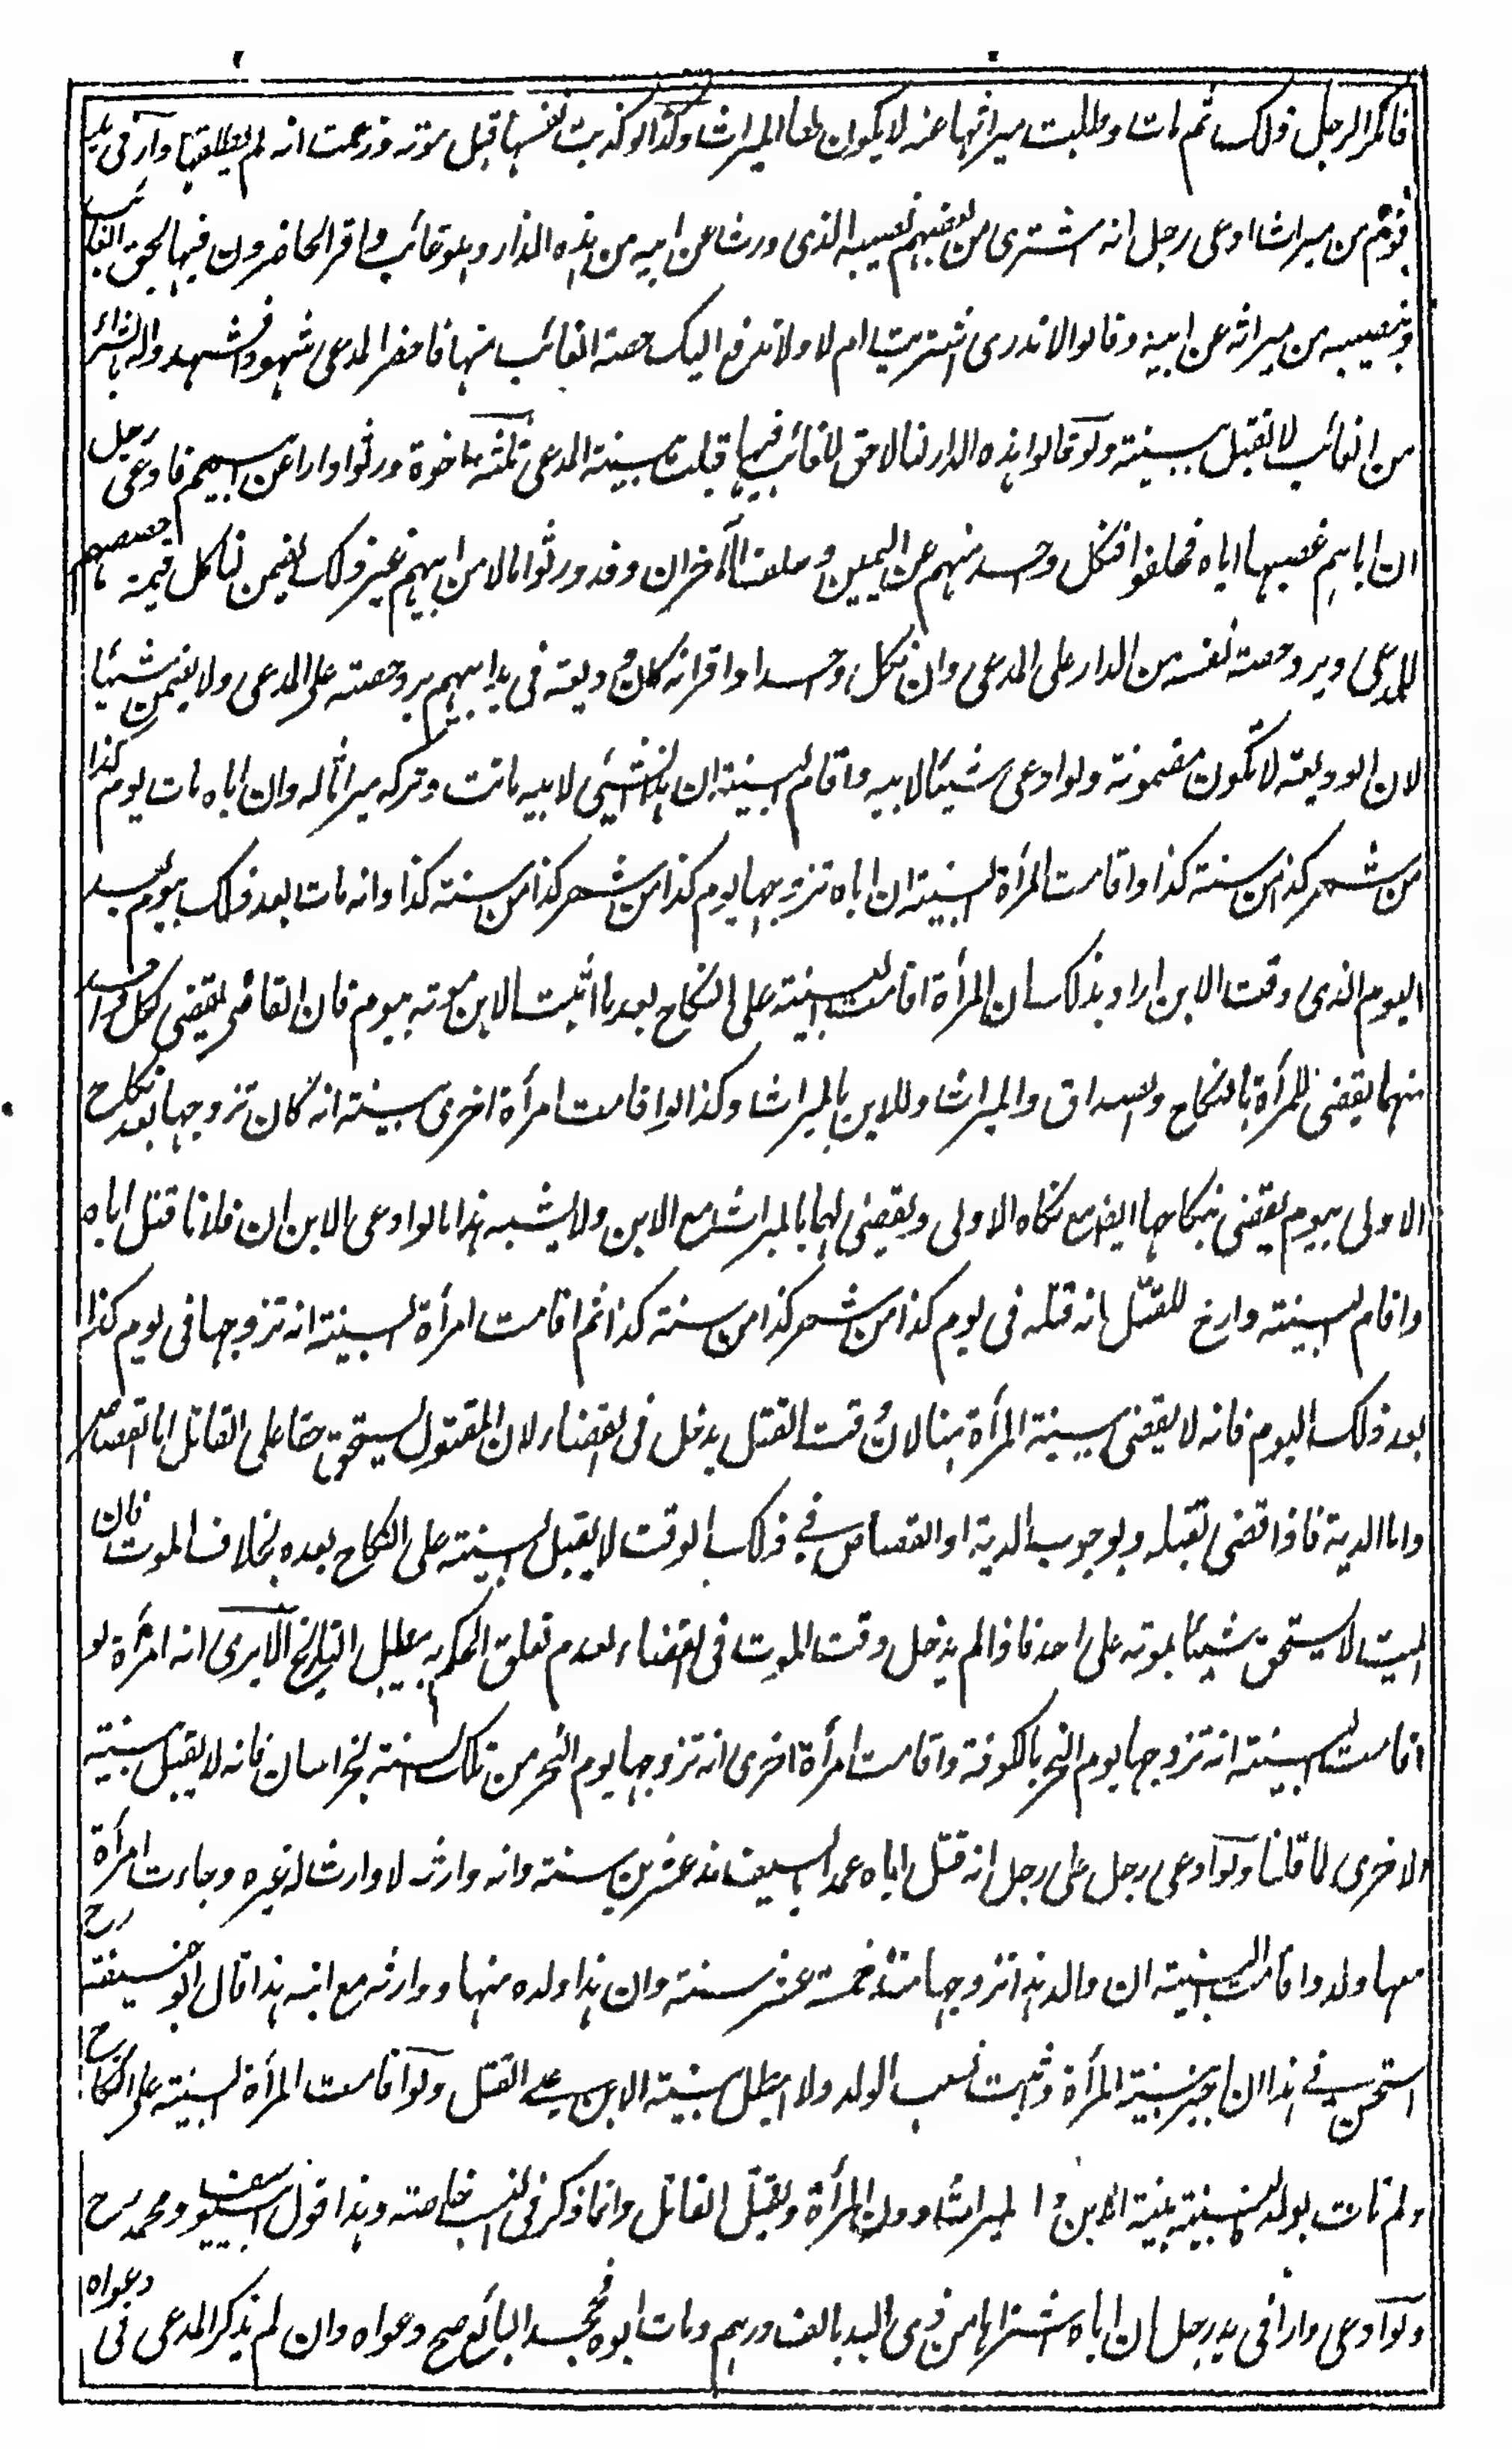 فانكر الرجل ذلك ثم مات وطلبت ميراثها عنه لا يكون لها الميراث وكذا لو كذبت نفسها قبل موته وزعمت انه لم يطلقها دار في يد
قوم من ميراث ادعى رجل انه اشترى من بعضهم نصيبه الذي ورث عن ابيه من هذه الدار وهو غائب واقر الحاضرون فيها بحق الغائب
ونصيبه من ميراثه عن ابيه وقالوا لا ندرى اشتريت ام لا ولا ندفع اليك حصة الغائب منها فاحضر المدعى شهودا فشهدوا له بالشراء
من الغائب لا تقبل بينته ولو قالوا هذه الدار لنا لا حق للغائب فيها قبلت بينة المدعى ثلثة اخوة ورثوا دارا عن ابيهم فادعى رجل
ان اباهم غصبها اياه فحلفوا فنكل واحد منهم عن اليمين وحلف الآخران وقد ورثوا مالا من ابيهم غير ذلك يضمن الناكل قيمة حصصهم
للمدعى ويرد حصة نفسه من الدار على المدعى وان نكل واحد او اقر انه كان وديعة في يد ابيهم يرد حصته على المدعى ولا يضمن شيئا
لان الوديعة لا تكون مضمونة ولو ادعى شيئا لابيه واقام البينة ان هذا الشيئ لابيه مات وتركه ميراثا له وان اباه مات يوم كذا
من شهر كذا من سنة كذا واقامت المرأة البينة ان اباه تزوجها يوم كذا من شهر كذا من سنة كذا وانه مات بعد ذلك بيوم بعد
اليوم الذى وقت الابن اراد بذلك ان المرأة اقامت البينة على النكاح بعد ما اثبت الابن موته بيوم فان القاضى يقضى لكل واحد
منهما يقضى للمرأة بالنكاح والصداق والميراث وللابن بالميراث وكذا لو اقامت امرأة اخرى بينة انه كان تزوجها بعد نكاح
الاولى بيوم يقضى بنكاحها ايضا مع نكاح الاولى ويقضى لهما بالميراث مع الابن ولا يشبه هذا ما لو ادعى الابن ان فلانا قتل اباه
واقام البينة وارخ للقتل انه قتله في يوم كذا من شهر كذا من سنة كذا ثم اقامت امرأة البينة انه تزوجها في يوم كذا
بعد ذلك اليوم فانه لا يقضى ببينة المرأة هنا لان وقت القتل يدخل في القضاء لان المقتول يستحق حقا على القاتل اما القصاص
واما الدية فاذا قضى بقتله وبوجوب الدية او القصاص في ذلك الوقت لا يقبل البينة على النكاح بعده بخلاف الموت فان
الميت لا يستحق شيئا بموته على احد فاذا لم يدخل وقت الموت في القضاء لعدم تعلق الحكم به بطل التاريخ الا يرى انه امرأة لو
اقامت البينة انه تزوجها يوم النحر بالكوفة واقامت امرأة اخرى انه تزوجها يوم النحر من تلك السنة بخراسان فانه لا يقبل بينة
الاخرى لما قلنا ولو ادعى رجل على رجل انه قتل اباه عمدا بالسيف منذ عشرين سنة وانه وارثه لا وارث له غيره وجاءت امرأة
معها ولد واقامت البينة ان والد هذا تزوجها منذ خمسة عشر سنة وان هذا ولده منها ووارثه مع ابنه هذا قال ابو حنيفة رح
استحسن في هذا ان اجيز بينة المرأة وثبت نسب الولد ولا ابطل بينة الابن على القتل ولو اقامت المرأة البينة على النكاح
ولم تات بولد فالبينة بينة الابن و الميراث دون المرأة ويقبل القاتل وانما ذكر في النسب خاصة وهذا قول ابى يوسف ومحمد رح
ولو ادعى دارا في يد رجل ان اباه اشتراها من ذى اليد بالف درهم ومات ابوه فجحد البائع صح دعواه وان لم يذكر المدعى في دعواه